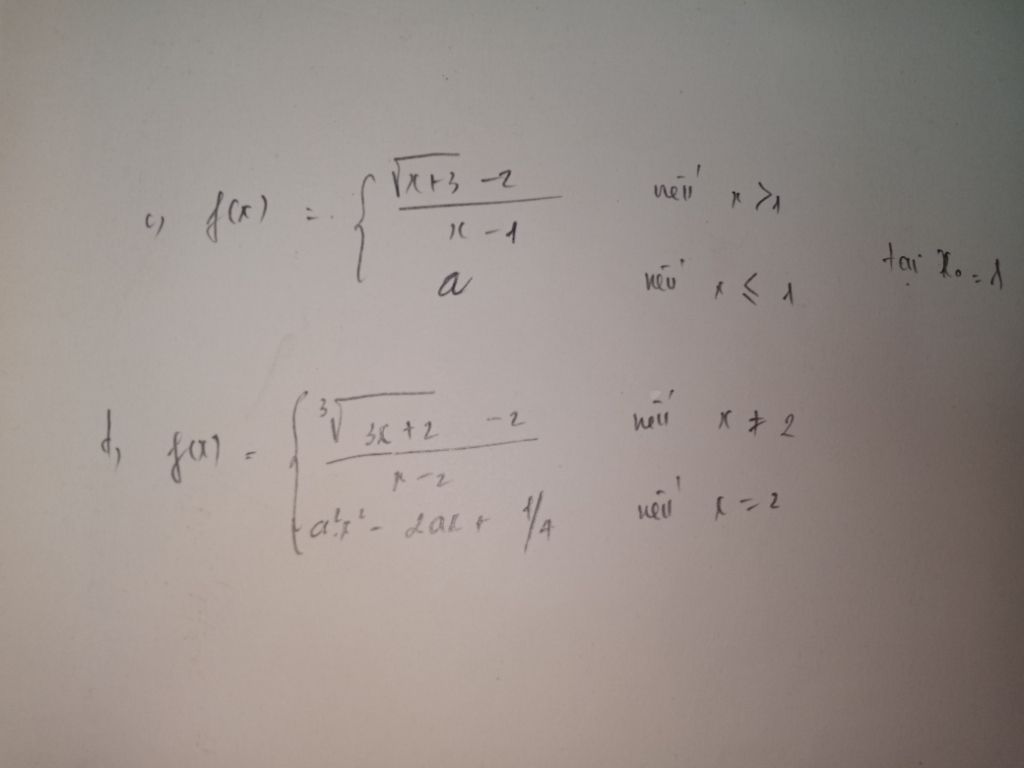 c, f(x) = { (√(x+3) - 2)/(x - 1) nếu x > 1
a nếu x ≤ 1 tại x₀ = 1
d, f(x) = { (∛(3x + 2) - 2)/(x - 2) nếu x ≠ 2
a²x² - 2ax + 1/4 nếu x = 2